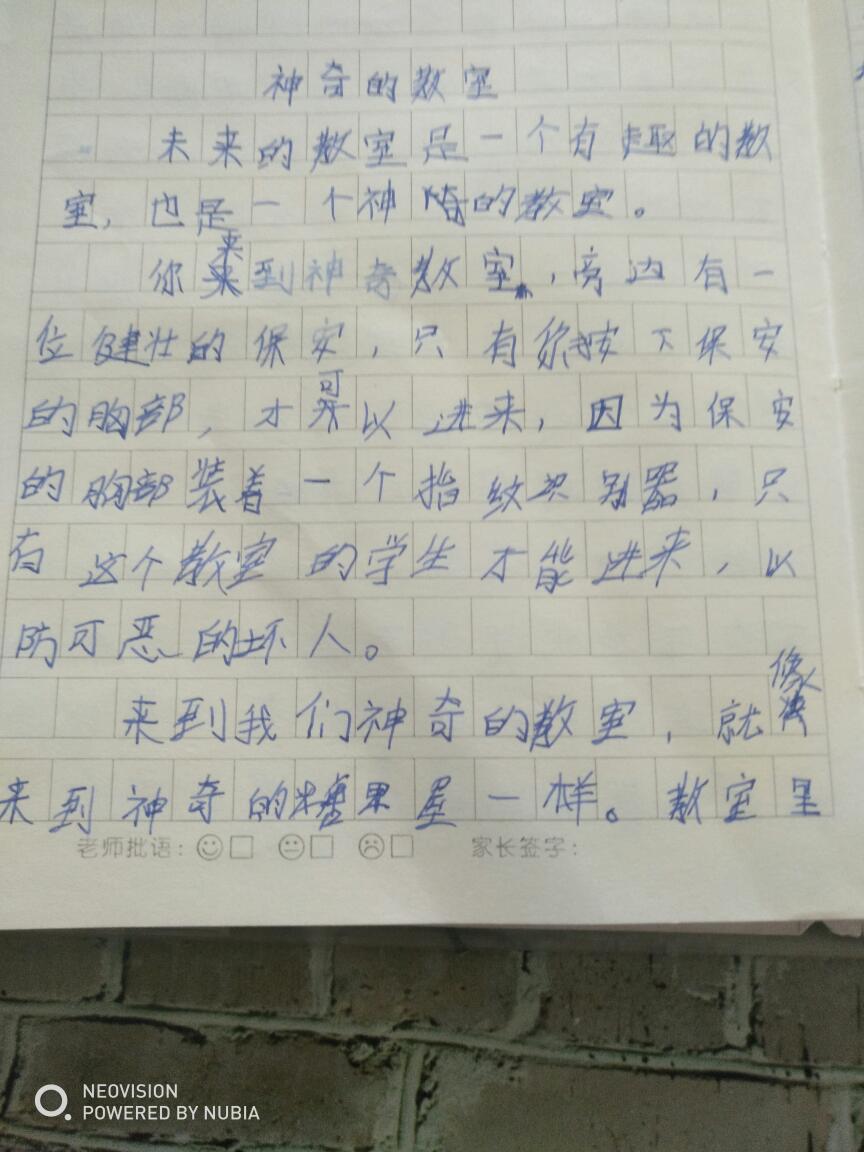 神奇的教室
未来的教室是一个有趣的教
室，也是一个神奇的教室。
你来到神奇教室，旁边有一
位健壮的保安，只有你按下保安
的胸部，才可以进来，因为保安
的胸部装着一个指纹识别器，只
有这个教室的学生才能进来，以
防可恶的坏人。
来到我们神奇的教室，就像
来到神奇的糖果屋一样。教室里
老师批语：
家长签字：
NEOVISION
POWERED BY NUBIA